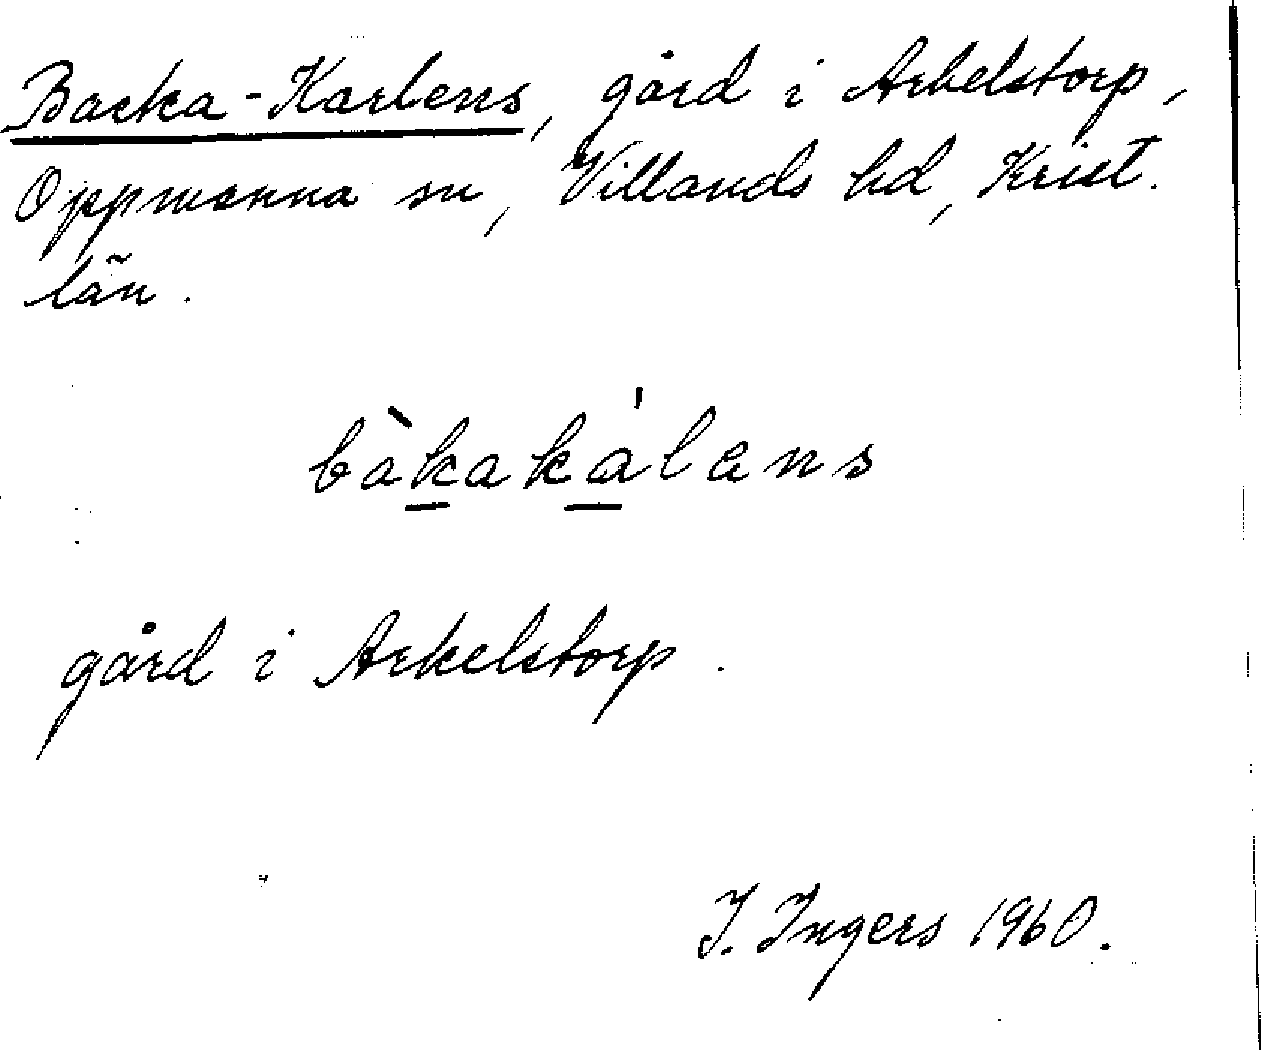 Backa-Karlens, gård i Arkelstorp,
Oppmanna sn, Villands hd, Krist.
län.
bàkakálens
gård i Arkelstorp.
I. Ingers 1960.